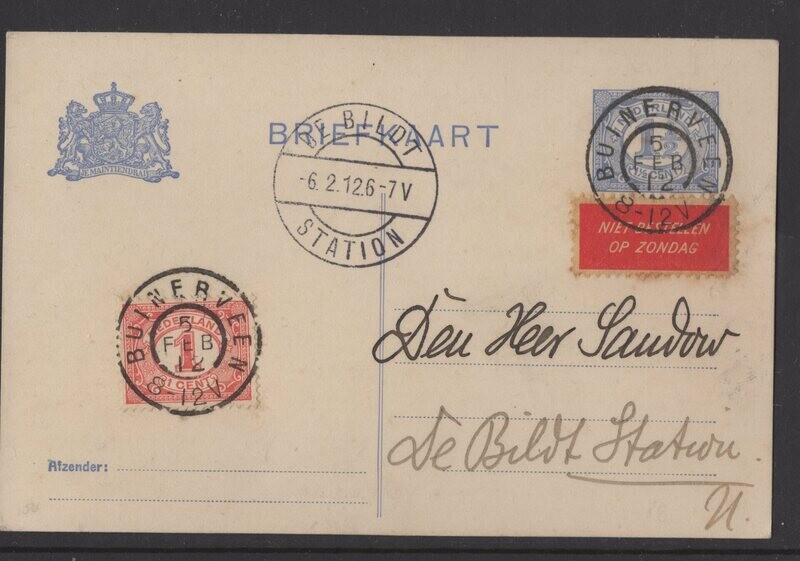 JE MAINTIENDRAI
BRIEFKAART
DE BILDT
-6.2.12.6-7V
STATION
NEDERLAND
1½
1½ CENT
BUINERVEEN
5
FEB
12
8-12V
NIET BESTELLEN
OP ZONDAG
NEDERLAND
1
1 CENT
BUINERVEEN
5
FEB
12
8-12V
Den Heer Sandow
De Bildt Station.
U.
Afzender: